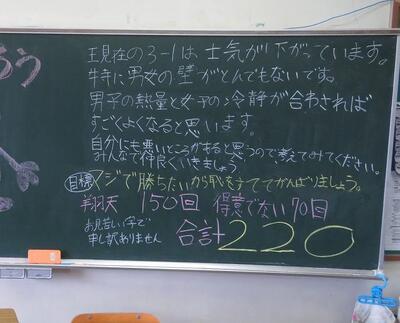 ろう
現在の3-1は士気が下がっています。
特に男女の壁がとんでもないです。
男子の熱量と女子の冷静が合わされば
すごくよくなると思います。
自分にも悪いところがあると思うので教えてみてください。
みんなで仲良くいきましょう
目標 マジで勝ちたいから恥をすててがんばりましょう。
翔天 150回 得意でない70回
お見苦しい字で
申し訳ありません
合計220